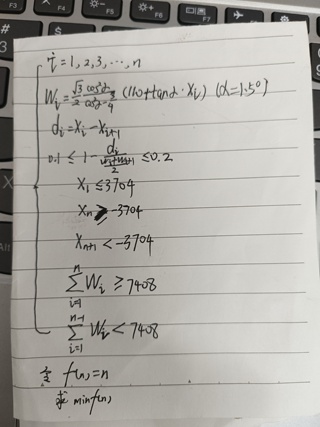 i = 1, 2, 3, ..., n
Wᵢ = √3/2 · cos²α - 3/4 / cos²α - 1/4 (110 + tanα · xᵢ) (α = 1.5°)
dᵢ = xᵢ - xᵢ₊₁
0.1 ≤ 1 - dᵢ / ((wᵢ + wᵢ₊₁)/2) ≤ 0.2
x₁ ≤ 3704
xₙ ≥ -3704
xₙ₊₁ < -3704
∑ᵢ₌₁ⁿ Wᵢ ≥ 7408
∑ᵢ₌₁ⁿ⁻¹ Wᵢ < 7408
令 f(n) = n
求 min f(n)